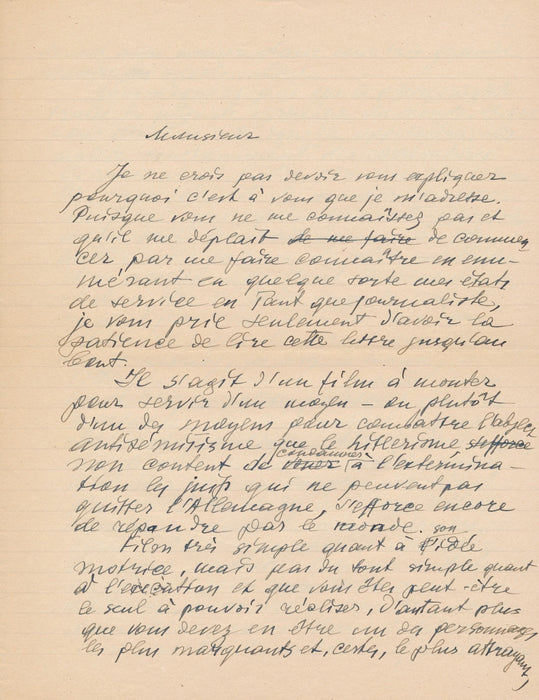 Monsieur
Je ne crois pas devoir vous expliquer
pourquoi c'est à vous que je m'adresse.
Puisque vous ne me connaissez pas et
qu'il me déplaît de me faire de commen-
cer par me faire connaître en énu-
mérant en quelque sorte mes états
de service en tant que journaliste,
je vous prie seulement d'avoir la
patience de lire cette lettre jusqu'au
bout.
Il s'agit d'un film à monter
pour servir d'un moyen – ou plutôt
d'un des moyens pour combattre l'abject
antisémitisme que le hitlerisme s'efforce
condamner
non content de vouer à l'extermina-
tion les juifs qui ne peuvent pas
quitter l'Allemagne, s'efforce encore
de répandre par le monde.
son
Film très simple quant à l'idée
motrice, mais pas du tout simple quant
à l'exécution et que vous êtes peut-être
le seul à pouvoir réaliser, d'autant plus
que vous devez en être un des personnages
les plus marquants et, certes, le plus attrayant,